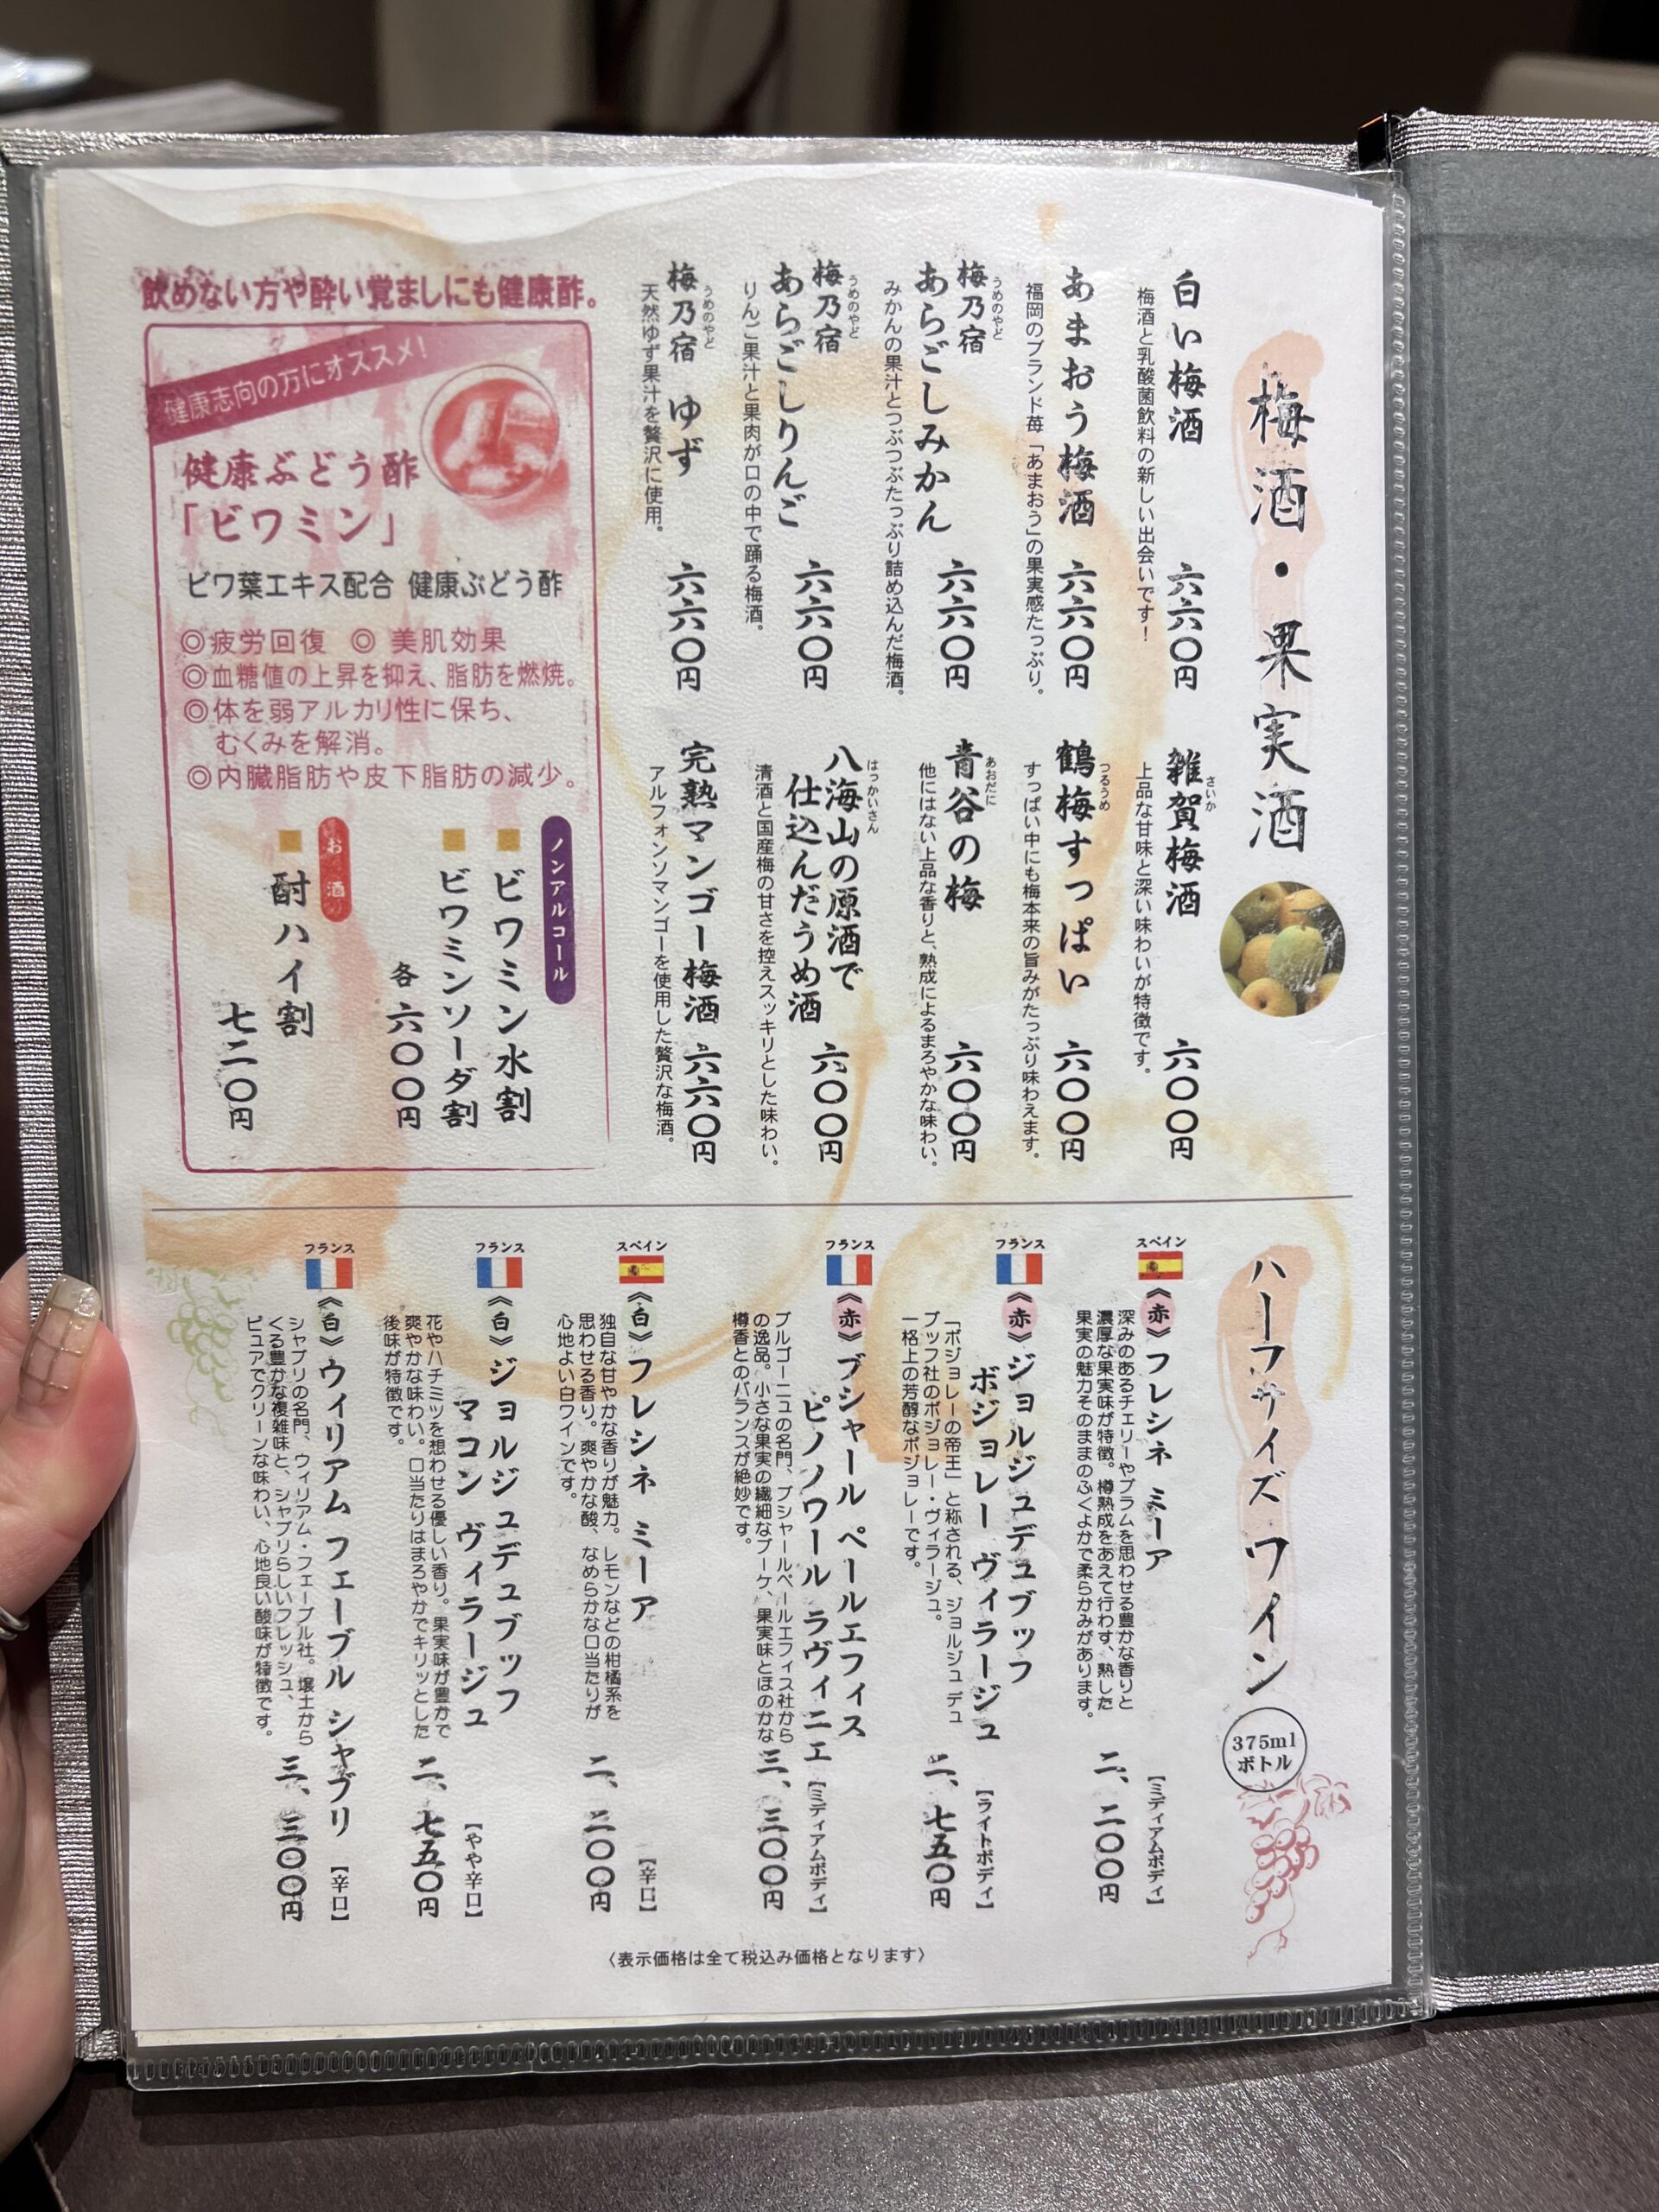 梅酒・果実酒
白い梅酒 六六〇円
梅酒と乳酸菌飲料の新しい出会いです！
あまおう梅酒 六六〇円
福岡のブランド苺「あまおう」の果実感たっぷり。
うめのやど
梅乃宿
あらごしみかん 六六〇円
みかんの果汁とつぶつぶたっぷり詰め込んだ梅酒。
うめのやど
梅乃宿
あらごしりんご 六六〇円
りんご果汁と果肉が口の中で踊る梅酒。
うめのやど
梅乃宿 ゆず 六六〇円
天然ゆず果汁を贅沢に使用。
さいか
雑賀梅酒 六〇〇円
上品な甘味と深い味わいが特徴です。
つるうめ
鶴梅すっぱい 六〇〇円
すっぱい中にも梅本来の旨みがたっぷり味わえます。
あおだに
青谷の梅 六〇〇円
他にはない上品な香りと、熟成によるまろやかな味わい。
はっかいさん
八海山の原酒で
仕込んだうめ酒 六〇〇円
清酒と国産梅の甘さを控えスッキリとした味わい。
完熟マンゴー梅酒 六六〇円
アルフォンソマンゴーを使用した贅沢な梅酒。
飲めない方や酔い覚ましにも健康酢。
健康志向の方にオススメ！
健康ぶどう酢
「ビワミン」
ビワ葉エキス配合 健康ぶどう酢
◎疲労回復 ◎美肌効果
◎血糖値の上昇を抑え、脂肪を燃焼。
◎体を弱アルカリ性に保ち、
むくみを解消。
◎内臓脂肪や皮下脂肪の減少。
ノンアルコール
■ビワミン水割
■ビワミンソーダ割
各 六〇〇円
お酒
■酎ハイ割
七二〇円
ハーフサイズワイン
375ml
ボトル
スペイン
《赤》フレシネ ミーア
【ミディアムボディ】
深みのあるチェリーやプラムを思わせる豊かな香りと
濃厚な果実味が特徴。樽熟成をあえて行わず、熟した
果実の魅力そのままのふくよかで柔らかみがあります。
二、二〇〇円
フランス
《赤》ジョルジュデュブッフ
ボジョレー ヴィラージュ
【ライトボディ】
「ボジョレーの帝王」と称される、ジョルジュ デュ
ブッフ社のボジョレー・ヴィラージュ。
一格上の芳醇なボジョレーです。
二、七五〇円
フランス
《赤》ブシャール ペールエフィス
ピノノワール ラヴィニエ
【ミディアムボディ】
ブルゴーニュの名門、ブシャールペールエフィス社から
の逸品。小さな果実の繊細なブーケ、果実味とほのかな
樽香とのバランスが絶妙です。
三、三〇〇円
スペイン
《白》フレシネ ミーア
【辛口】
独自な甘やかな香りが魅力。レモンなどの柑橘系を
思わせる香り。爽やかな酸、なめらかな口当たりが
心地よい白ワインです。
二、二〇〇円
フランス
《白》ジョルジュデュブッフ
マコン ヴィラージュ
【やや辛口】
花やハチミツを想わせる優しい香り。果実味が豊かで
爽やかな味わい。口当たりはまろやかでキリッとした
後味が特徴です。
二、七五〇円
フランス
《白》ウィリアム フェーブル シャブリ
【辛口】
シャブリの名門、ウィリアム・フェーブル社。壌土から
くる豊かな複雑味と、シャブリらしいフレッシュ、
ピュアでクリーンな味わい、心地良い酸味が特徴です。
三、三〇〇円
〈表示価格は全て税込み価格となります〉